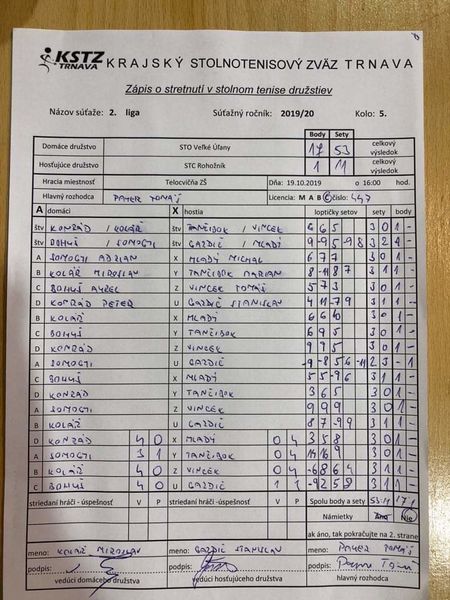 KSTZ TRNAVA KRAJSKÝ STOLNOTENISOVÝ ZVÄZ TRNAVA
Zápis o stretnutí v stolnom tenise družstiev
Názov súťaže: 2. liga Súťažný ročník: 2019/20 Kolo: 5.
Body Sety
Domáce družstvo STO Veľké Úľany 17 53 celkový výsledok
Hosťujúce družstvo STC Rohožník 1 11 celkový výsledok
Hracia miestnosť Telocvičňa ZŠ Dňa: 19.10.2019 o 16:00 hod.
Hlavný rozhodca PAYER TOMÁŠ Licencia: M A B C číslo: 447
A domáci X hostia loptičky setov sety body
štv KONRÁD / KOLÁŘ štv TANČIBOK / VINCEK 6 6 5 3 0 1 -
štv BOHUŠ / SOMOGYI štv GAZDIČ / MLADÝ 9 -9 5 -9 8 3 2 1 -
A SOMOGYI ADRIAN X MLADÝ MICHAL 6 7 7 3 0 1 -
B KOLÁŘ MIROSLAV Y TANČIBOK MARIAN 8 -11 8 7 3 1 1 -
C BOHUŠ AUREL Z VINCEK TOMÁŠ 5 7 3 3 0 1 -
D KONRÁD PETER U GAZDIČ STANISLAV 4 11 -7 9 3 1 1 -
B KOLÁŘ X MLADÝ 6 6 0 3 0 1 -
C BOHUŠ Y TANČIBOK 6 9 5 3 0 1 -
D KONRÁD Z VINCEK 9 9 5 3 0 1 -
A SOMOGYI U GAZDIČ -9 -8 5 6 -11 2 3 - 1
C BOHUŠ X MLADÝ 5 5 -9 6 3 1 1 -
D KONRÁD Y TANČIBOK 3 6 5 3 0 1 -
A SOMOGYI Z VINCEK 9 9 9 3 0 1 -
B KOLÁŘ U GAZDIČ 8 7 -9 9 3 1 1 -
D KONRÁD 4 0 X MLADÝ 0 4 3 5 8 3 0 1 -
A SOMOGYI 3 1 Y TANČIBOK 0 4 3 0 1 -
B KOLÁŘ 4 0 Z VINCEK 0 4 -6 8 6 4 3 1 1 -
C BOHUŠ 4 0 U GAZDIČ 1 -9 2 5 8 3 1 1 -
striedaní hráči - úspešnosť V P striedaní hráči - úspešnosť V P Spolu body a sety 53:11 17 1
Námietky Áno Nie
ak áno, tak pokračujte na 2. strane
meno: KOLÁŘ MIROSLAV meno: GAZDIČ STANISLAV meno: PAYER TOMÁŠ
podpis: podpis: podpis:
vedúci domáceho družstva vedúci hosťujúceho družstva hlavný rozhodca